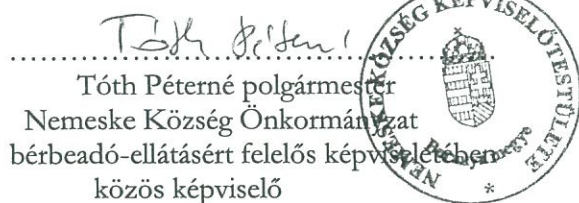 Tóth Péterné
Tóth Péterné polgármester
Nemeske Község Önkormányzat
bérbeadó-ellátásért felelős képviseletében
közös képviselő
NEMESKE KÖZSÉG KÉPVISELŐTESTÜLETE
Baranya megye
*